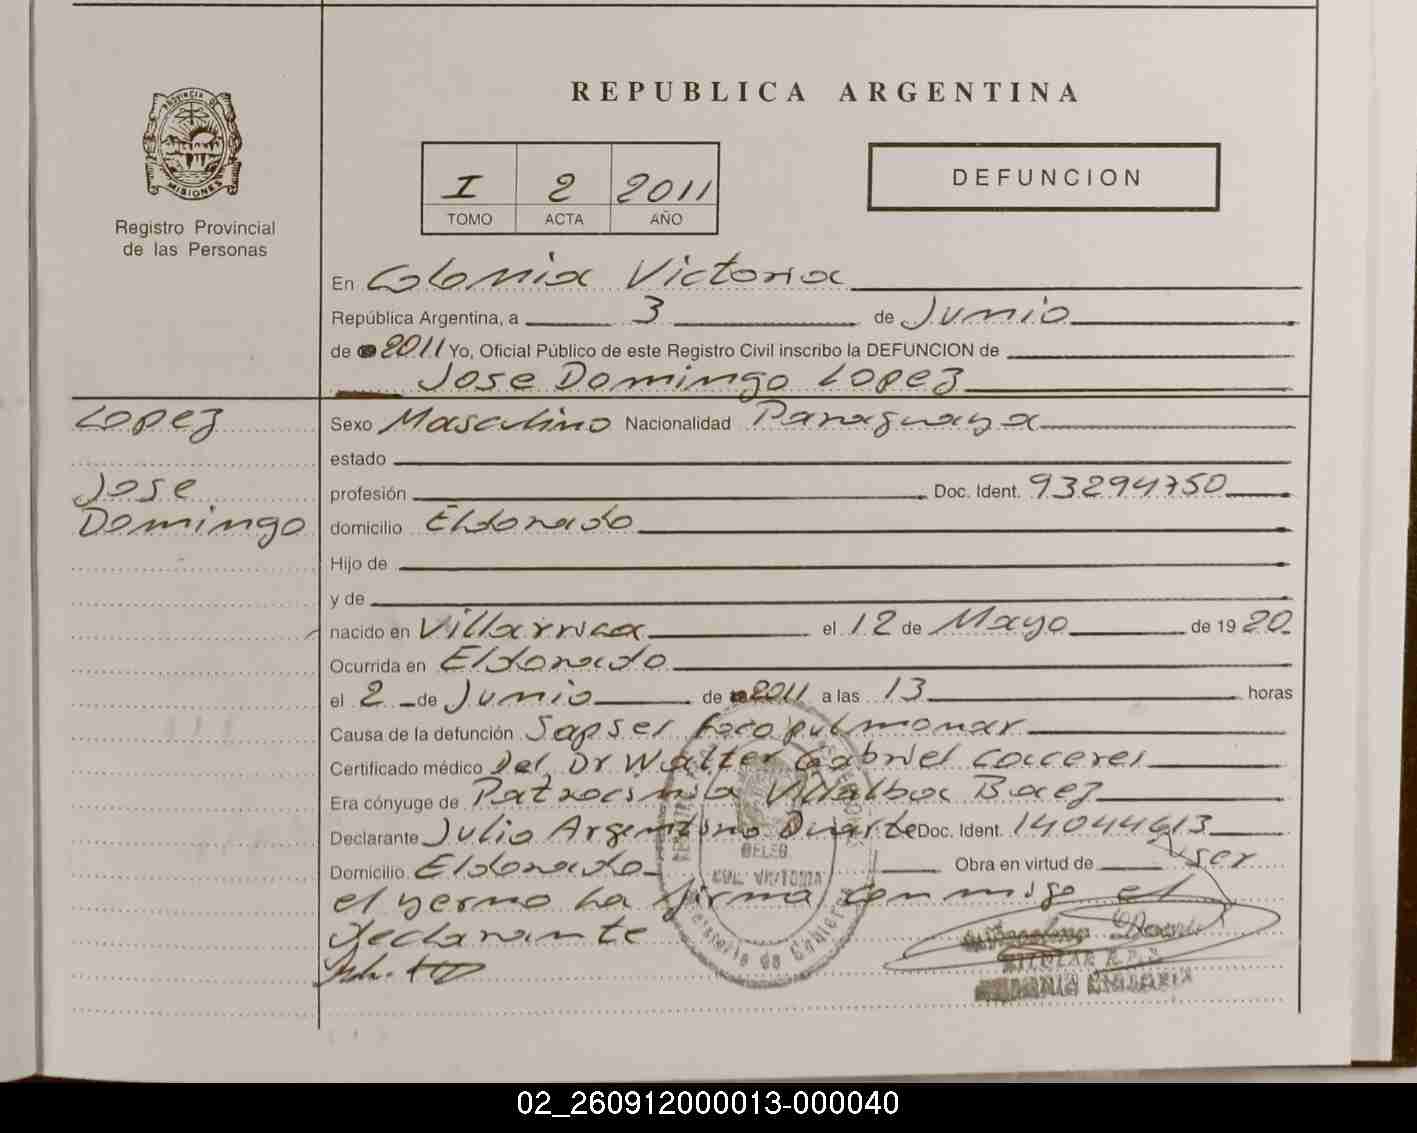 REPUBLICA ARGENTINA
PROVINCIA DE
MISIONES
Registro Provincial
de las Personas
I 2 2011
TOMO ACTA AÑO
DEFUNCION
En Colonia Victoria
República Argentina, a 3 de Junio
de 2011 Yo, Oficial Público de este Registro Civil inscribo la DEFUNCION de
Jose Domingo Lopez
Lopez
Jose
Domingo
Sexo Masculino Nacionalidad Paraguaya
estado
profesión Doc. Ident. 93294750
domicilio Eldorado
Hijo de
y de
nacido en Villarrica el 12 de Mayo de 1920
Ocurrida en Eldorado
el 2 de Junio de 2011 a las 13 horas
Causa de la defunción Sapsel foco pulmonar
Certificado médico Del Dr Walter Gabriel Cacerel
Era cónyuge de Patrocinia Villalba Baez
Declarante Julio Argentino Duarte Doc. Ident. 14044613
Domicilio Eldorado Obra en virtud de ser
el yerno La firma conmigo el
declarante
DELEG
COL. VICTORIA
Ministerio de Gobierno
TITULAR R.P.